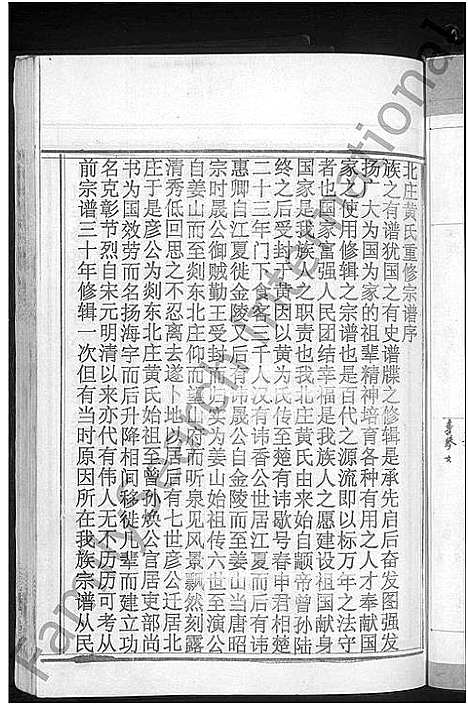 北庄黄氏重修宗谱序
族之有谱犹国之有史谱牒之修辑是承先启后奋发图强发
扬广大为国为家的祖辈精神培育各种有用之人才奉献国
家之使用修辑之宗谱也是百代之源流即以标万年之法守
者也国家富强人民团结幸福是我族人之愿建设祖国献身
国家是我族人之职责也我北庄黄氏由来始自颛帝曾孙陆
终之后受封于黄因以黄为氏传至楚有讳歇号春申君相楚
二十三年门下食客三千人汉有讳香公世居江夏而后有讳
惠卿自江夏徙金陵又后有讳晟公自金陵而至姜山当唐昭
宗时晟公御贼勤王受封而归安为姜山始祖传六世至演公
自姜山而至剡东北庄仰而望山府而听泉见风景飘然刻露
清秀低回思之不忍离去遂卜地以居后有七世彦公迁居北
庄于是彦公为剡东北庄黄氏始祖至曾孙焕公言居吏部尚
书为国效劳而名扬海宇而后升降相间移徙几辈而建立功
名克彰节烈自宋元明清以来亦代有伟人无不历历可考从
前宗谱三十年修辑一次但有当时原因所在我族宗谱从民
Family Search International